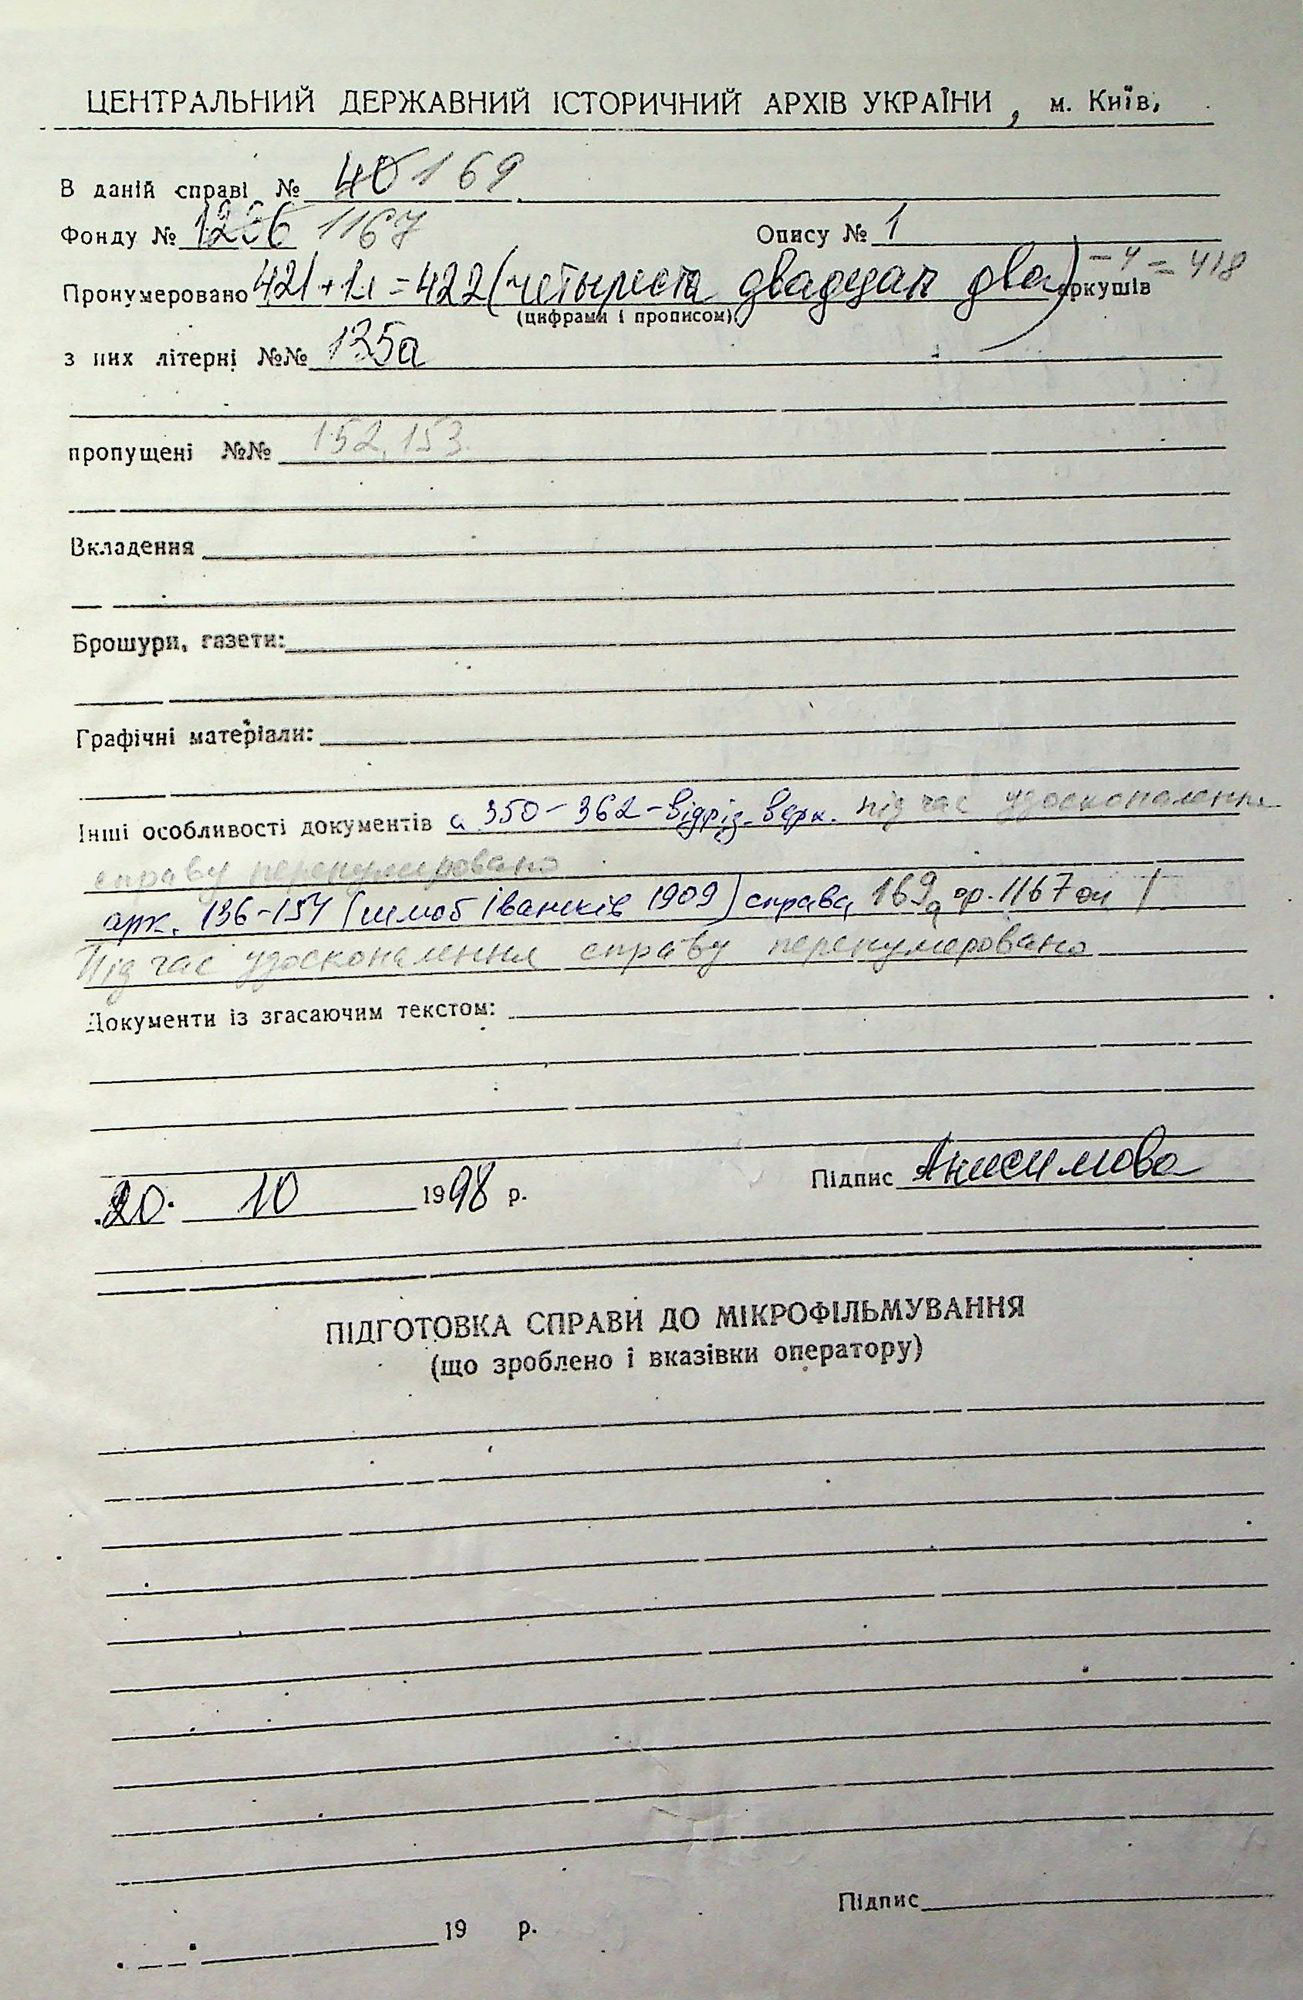 ЦЕНТРАЛЬНИЙ ДЕРЖАВНИЙ ІСТОРИЧНИЙ АРХІВ УКРАЇНИ, м. Київ,
В даній справі № 40 169
Фонду № 1286 1167 Опису № 1
Пронумеровано 421+1л=422 (четыреста двадцать два) аркушів -4=418
(цифрами і прописом)
з них літерні №№ 135а
пропущені №№ 152, 153
Вкладення
Брошури, газети:
Графічні матеріали:
Інші особливості документів а 350-362-відріз. верх. під час удосконалення
справу перенумеровано
арк. 136-154 (шлюб Іванків 1909) справа 169а ф. 1167 оп 1
Під час удосконалення справу перенумеровано
Документи із згасаючим текстом:
20. 10 1998 р. Підпис Анисимова
ПІДГОТОВКА СПРАВИ ДО МІКРОФІЛЬМУВАННЯ
(що зроблено і вказівки оператору)
Підпис
19 р.